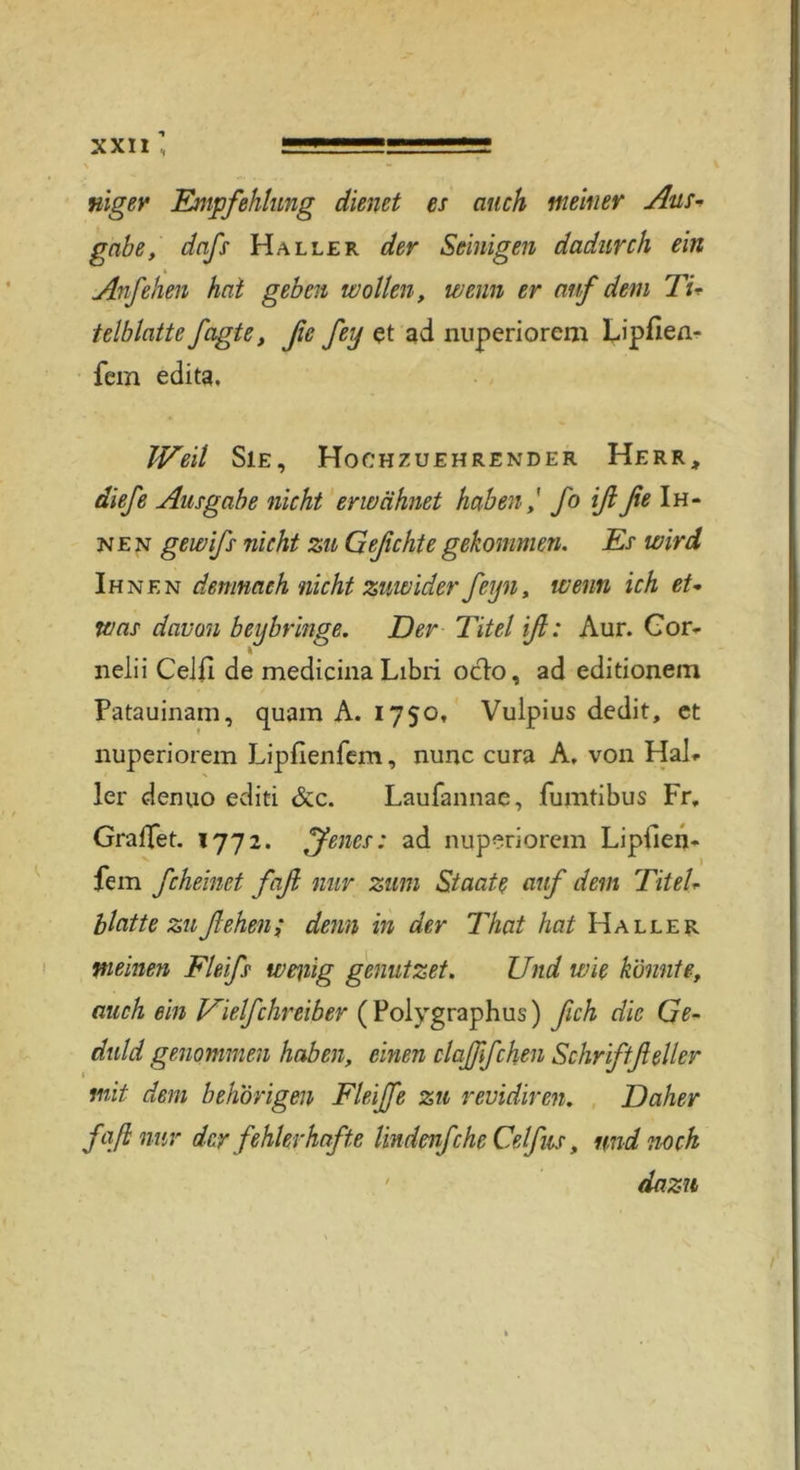 XXII
niger Empfehlung dienet es auch meiner Aus-
gabe, daſs HALLER der Seinigen dadurch ein
Anſehen hat geben wollen, wenn er auf dem Ti-
telblatte ſagte, ſie ſey et ad nuperiorem Lipſien-
ſem edita.
Weil SIE, HOCHZUEHRENDER HERR,
dieſe Ausgabe nicht erwähnet haben, ſo iſt ſie IH-
NEN gewiſs nicht zu Geſichte gekommen. Es wird
IHNEN demnach nicht zuwider ſeyn, wenn ich et-
was davon beybringe. Der Titel iſt: Aur. Cor-
nelii Celſi de medicina Libri octo, ad editionem
Patauinam, quam A. 1750, Vulpius dedit, et
nuperiorem Lipſienſem, nunc cura A. von Hal-
ler denuo editi &c. Lauſannae, ſumtibus Fr.
Graſſet. 1772. Jenes: ad nuperiorem Lipſien-
ſem ſcheinet faſt nur zum Staate auf dem Titel-
blatte zu ſtehen; denn in der That hat HALLER
meinen Fleiſs wenig genutzet. Und wie könnte,
auch ein Vielſchreiber (Polygraphus) ſich die Ge-
duld genommen haben, einen claſſiſchen Schriftſteller
mit dem behörigen Fleiſſe zu revidiren. Daher
faſt nur der fehlerhafte lindenſche Celſus, und noch
dazu